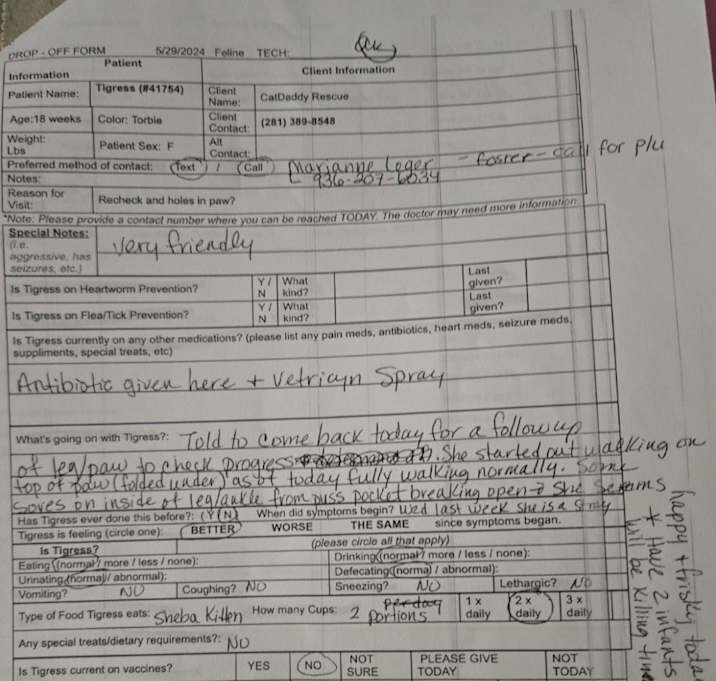 DROP - OFF FORM 5/29/2024 Feline TECH:
Patient Information Client Information
Patient Name: Tigress (#41754) Client Name: CatDaddy Rescue
Age:18 weeks Color: Torbie Client Contact: (281) 389-8548
Weight: Lbs Patient Sex: F Alt Contact:
Preferred method of contact: Text / Call Marianne Leger - foster - call for p/u
Notes: 936-207-6034
Reason for Visit: Recheck and holes in paw?
*Note: Please provide a contact number where you can be reached TODAY. The doctor may need more information
Special Notes: (i.e. aggressive, has seizures, etc.) very friendly
Is Tigress on Heartworm Prevention? Y / N What kind? Last given?
Is Tigress on Flea/Tick Prevention? Y / N What kind? Last given?
Is Tigress currently on any other medications? (please list any pain meds, antibiotics, heart meds, seizure meds,
suppliments, special treats, etc)
Antibiotic given here + Vetricyn Spray
What's going on with Tigress?: Told to come back today for a followup
of leg/paw to check progress. She started out walking on
top of paw (folded under) as of today fully walking normally. Some
sores on inside of leg/ankle from puss pocket breaking open → She seems
happy + frisky today
* Have 2 infants
will be killing time
Has Tigress ever done this before?: (Y/N) When did symptoms begin? Wed last week she is a stray
Tigress is feeling (circle one): BETTER WORSE THE SAME since symptoms began.
Is Tigress? (please circle all that apply)
Eating (normal / more / less / none): Drinking (normal / more / less / none):
Urinating (normal / abnormal): Defecating (normal / abnormal):
Vomiting? NO Coughing? NO Sneezing? NO Lethargic? NO
Type of Food Tigress eats: Sheba Kitten How many Cups: 2 per day portions 1 x daily 2 x daily 3 x daily
Any special treats/dietary requirements?: NO
Is Tigress current on vaccines? YES NO NOT SURE PLEASE GIVE TODAY NOT TODAY